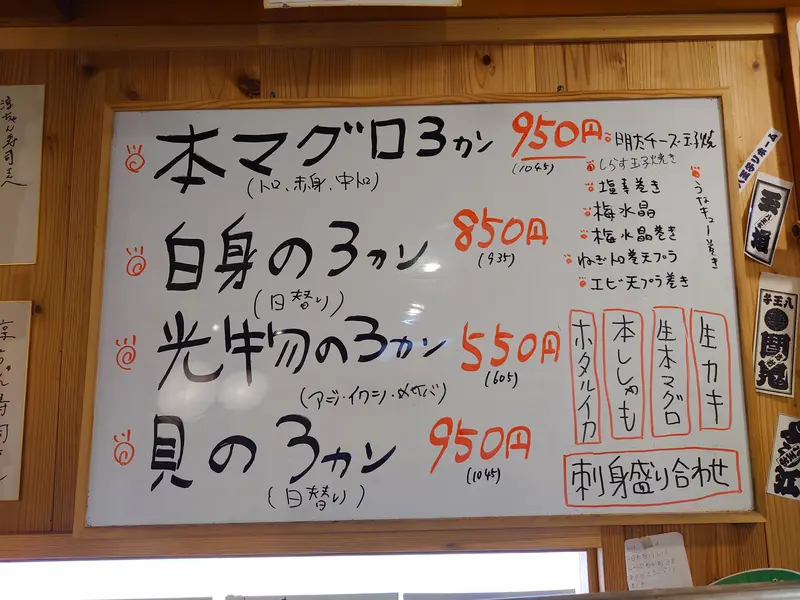 本マグロ3カン 950円
(1045)
(トロ、赤身、中トロ)
白身の3カン 850円
(935)
(日替り)
光物の3カン 550円
(605)
(アジ・イワシ・〆サバ)
貝の3カン 950円
(1045)
(日替り)
明太チーズ玉子焼
しらす玉子焼き
塩辛巻き
梅水晶
梅水晶巻き
ねぎトロ巻天プラ
エビ天プラ巻き
うなキュー巻き
生カキ
生本マグロ
本ししゃも
ホタルイカ
刺身盛り合わせ
八王子